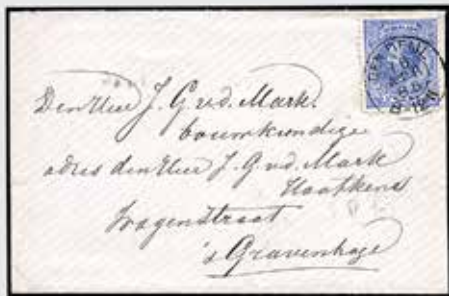 Den Heer J. G. v.d. Mark.
bouwkundige
adres den Heer J. G. v.d. Mark
Wagenstraat
's Gravenhage